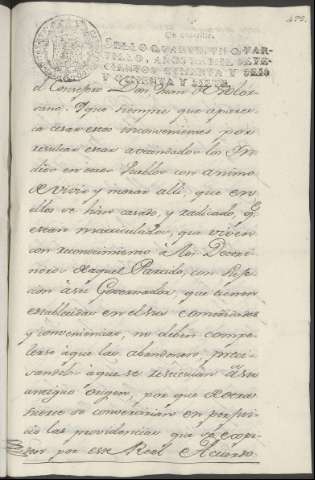 472.
SELLO QUARTO, UN QUAR-
TILLO, AÑOS DE MIL SETE-
CIENTOS OCHENTA Y SEIS
Y OCHENTA Y SIETE.
el Consejero Don Juan de Solor-
zano. Y que siempre que aparez-
ca cesar estos inconvenientes por
resultar estar avecindados los In-
dios en estos Pueblos con animo
de vivir y morar alli, que en
ellos se han casado, y radicado, q.
estan matriculados, que viven
con reconocimiento à los Decu-
riones de aquel Partido, con suje-
cion à su Governador, que tienen
establecidas en el sus comodidades
y conveniencias, no deben compe-
lerse à que las abandonen, preci-
sandolos à que se restituian à su
antiguo origen, por que de otra
suerte se convertirian en perjui-
cio las providencias que se expi-
den por este Real Acuerdo